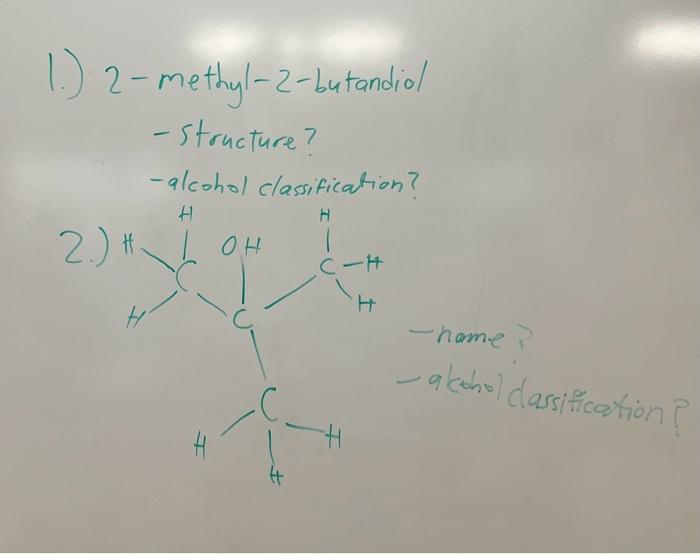 1.) 2-methyl-2-butandiol
- structure?
- alcohol classification?
2.)
H H OH H
C C-H
H C H
- name?
- alcohol classification?
C
H H
H